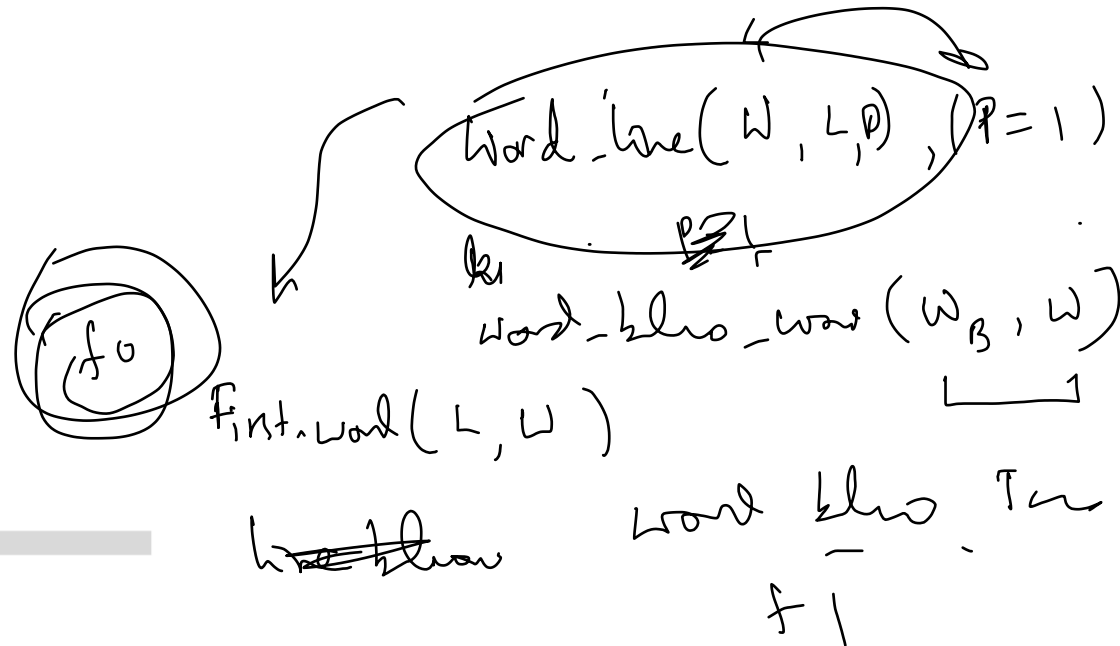 Word_line(W, L, P), (P = 1)
word_below_word(W_B, W)
f0
First_word(L, W)
word below
f1